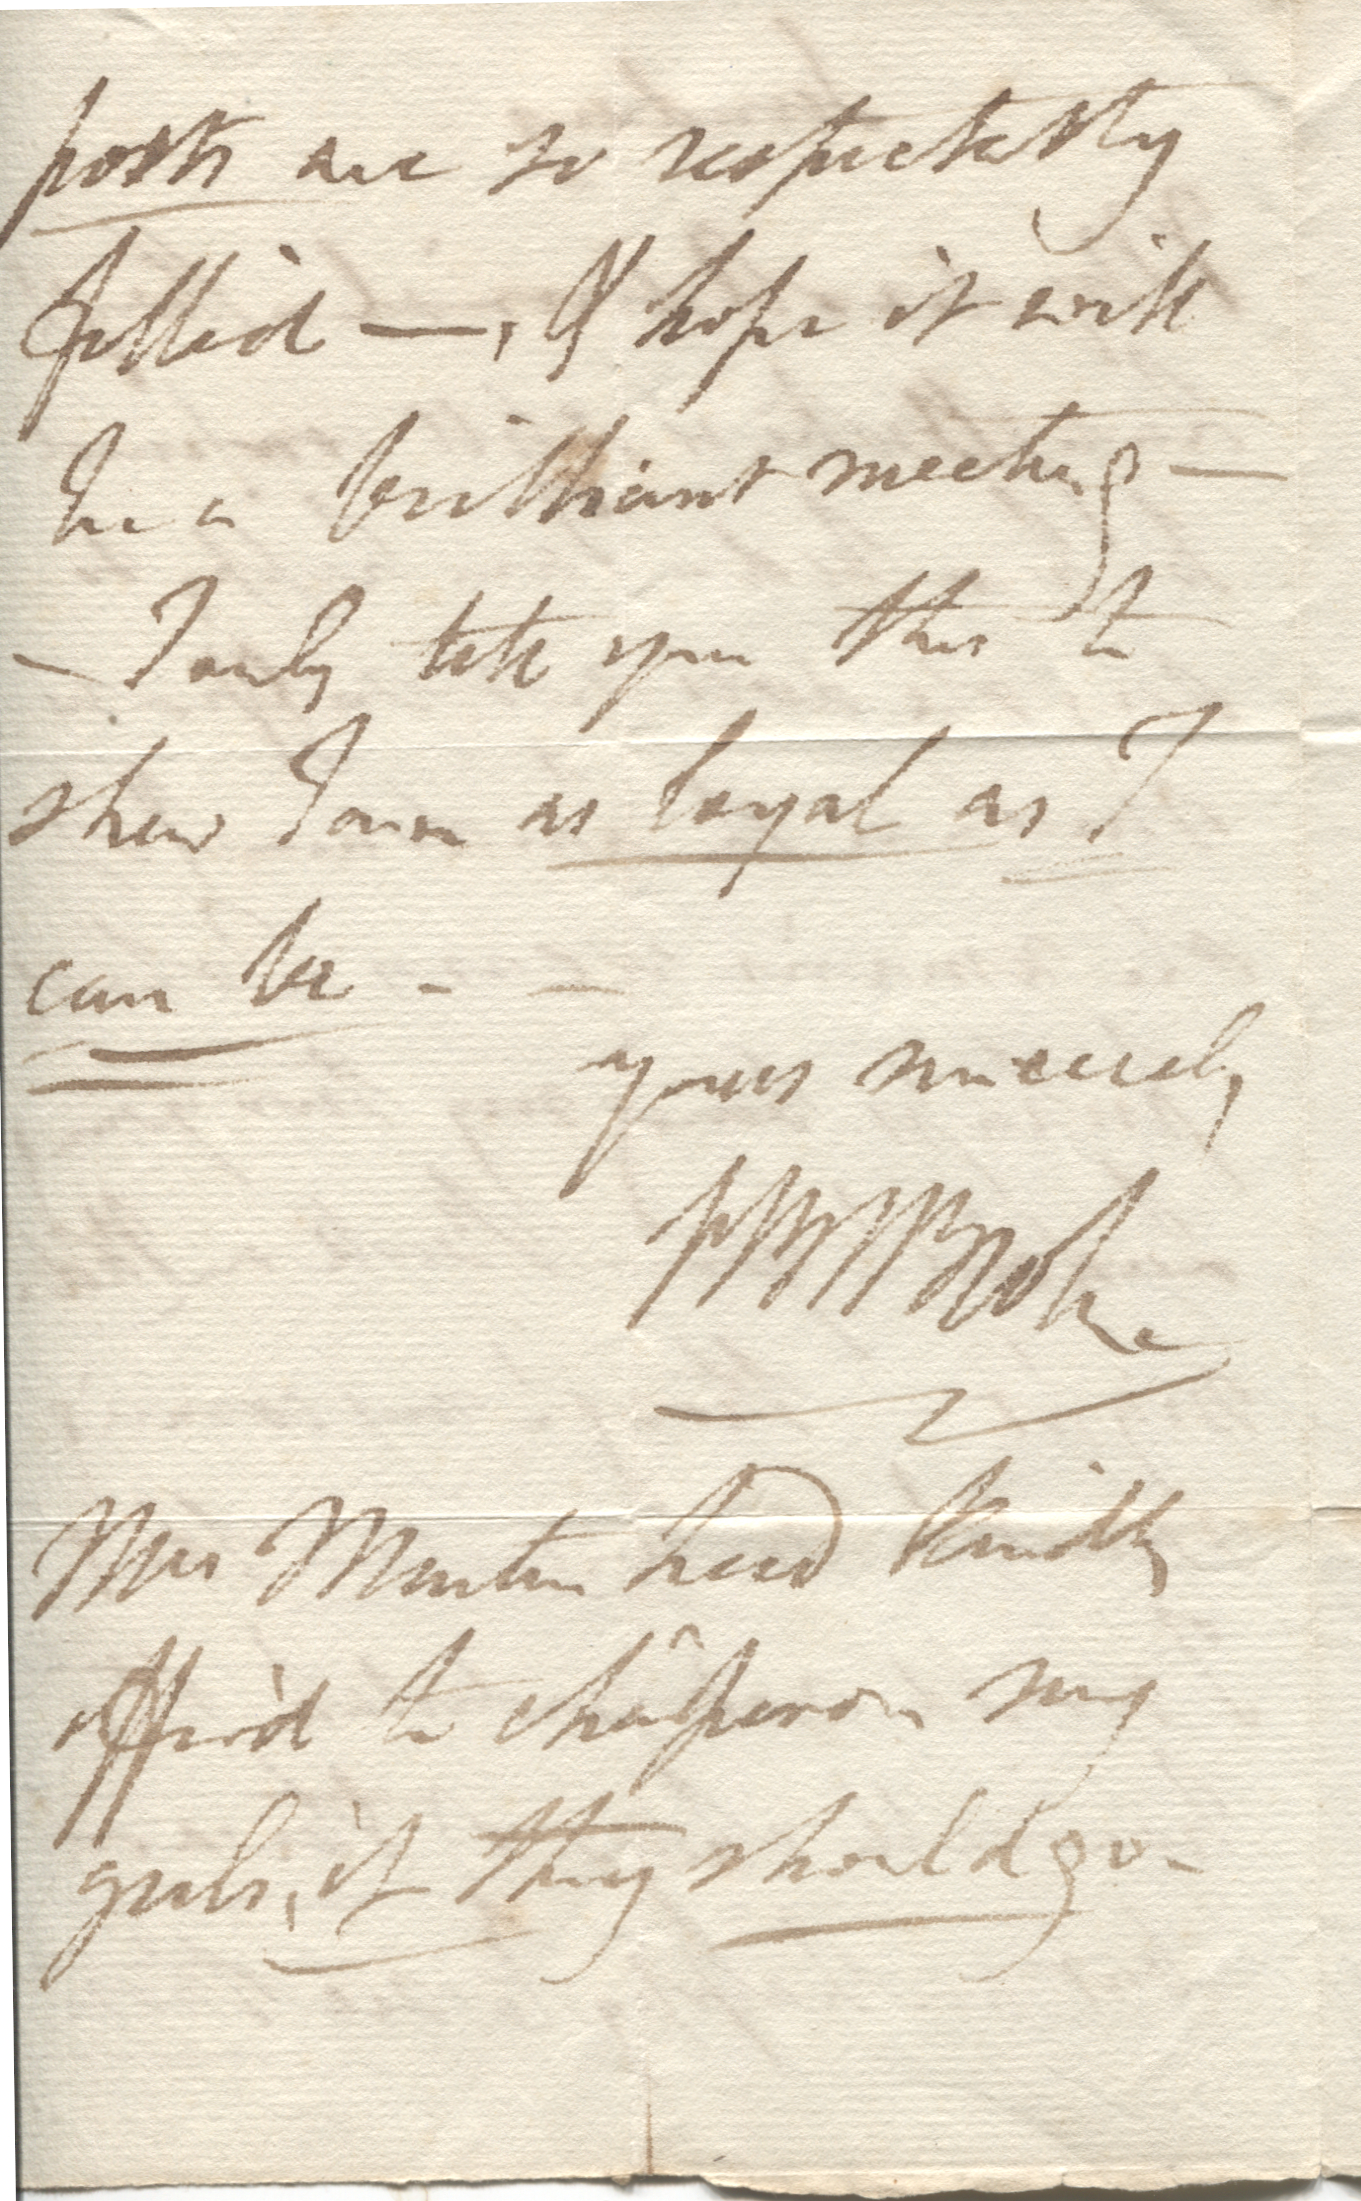 posts are so respectably
filled —, & hope it will
be a brilliant meeting —
- I only tell you this to
shew I am as loyal as I
can be - -
yours sincerely
PBVBroke
Mrs Martin had kindly
offer'd to châperon my
girls, if they should go -